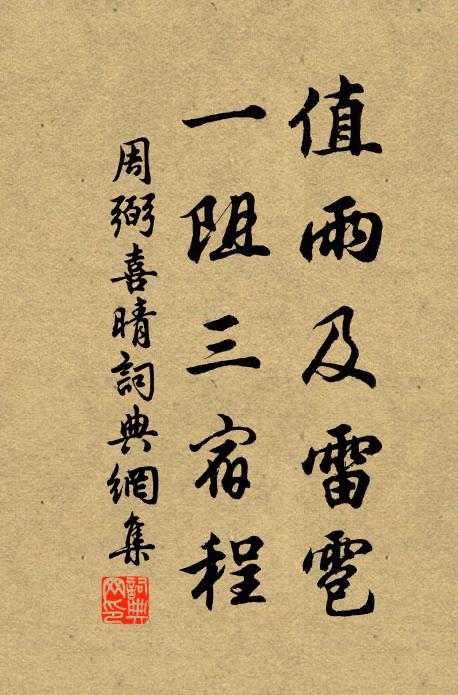 值雨及雷雹
一阻三宿程
周弼喜晴詞典網集
詞典
网印